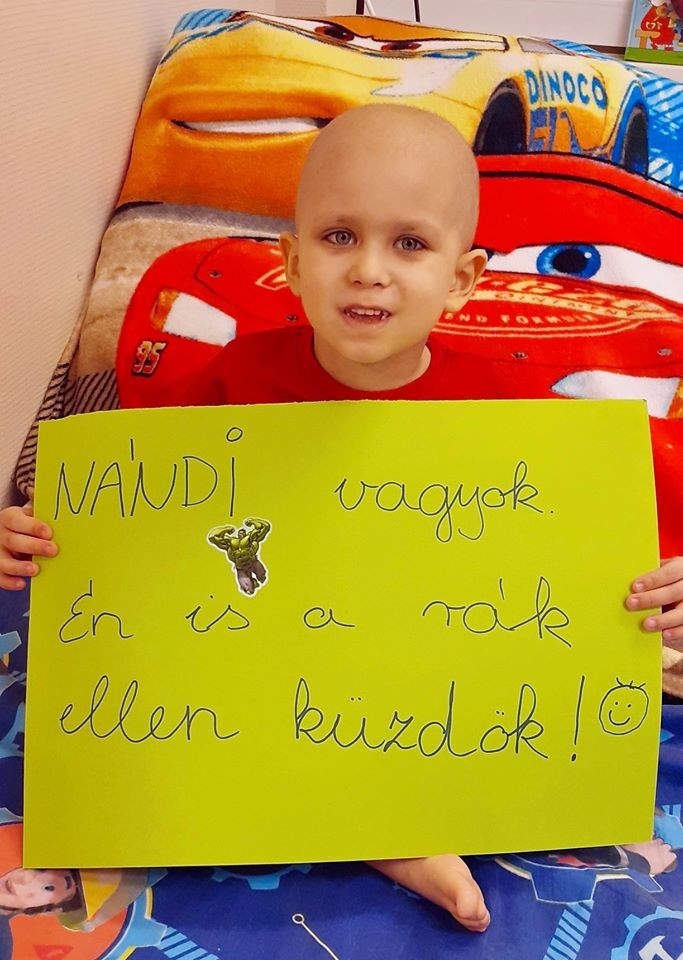 DINOCO
95
NÁNDI vagyok.
Én is a rák
ellen küzdök!